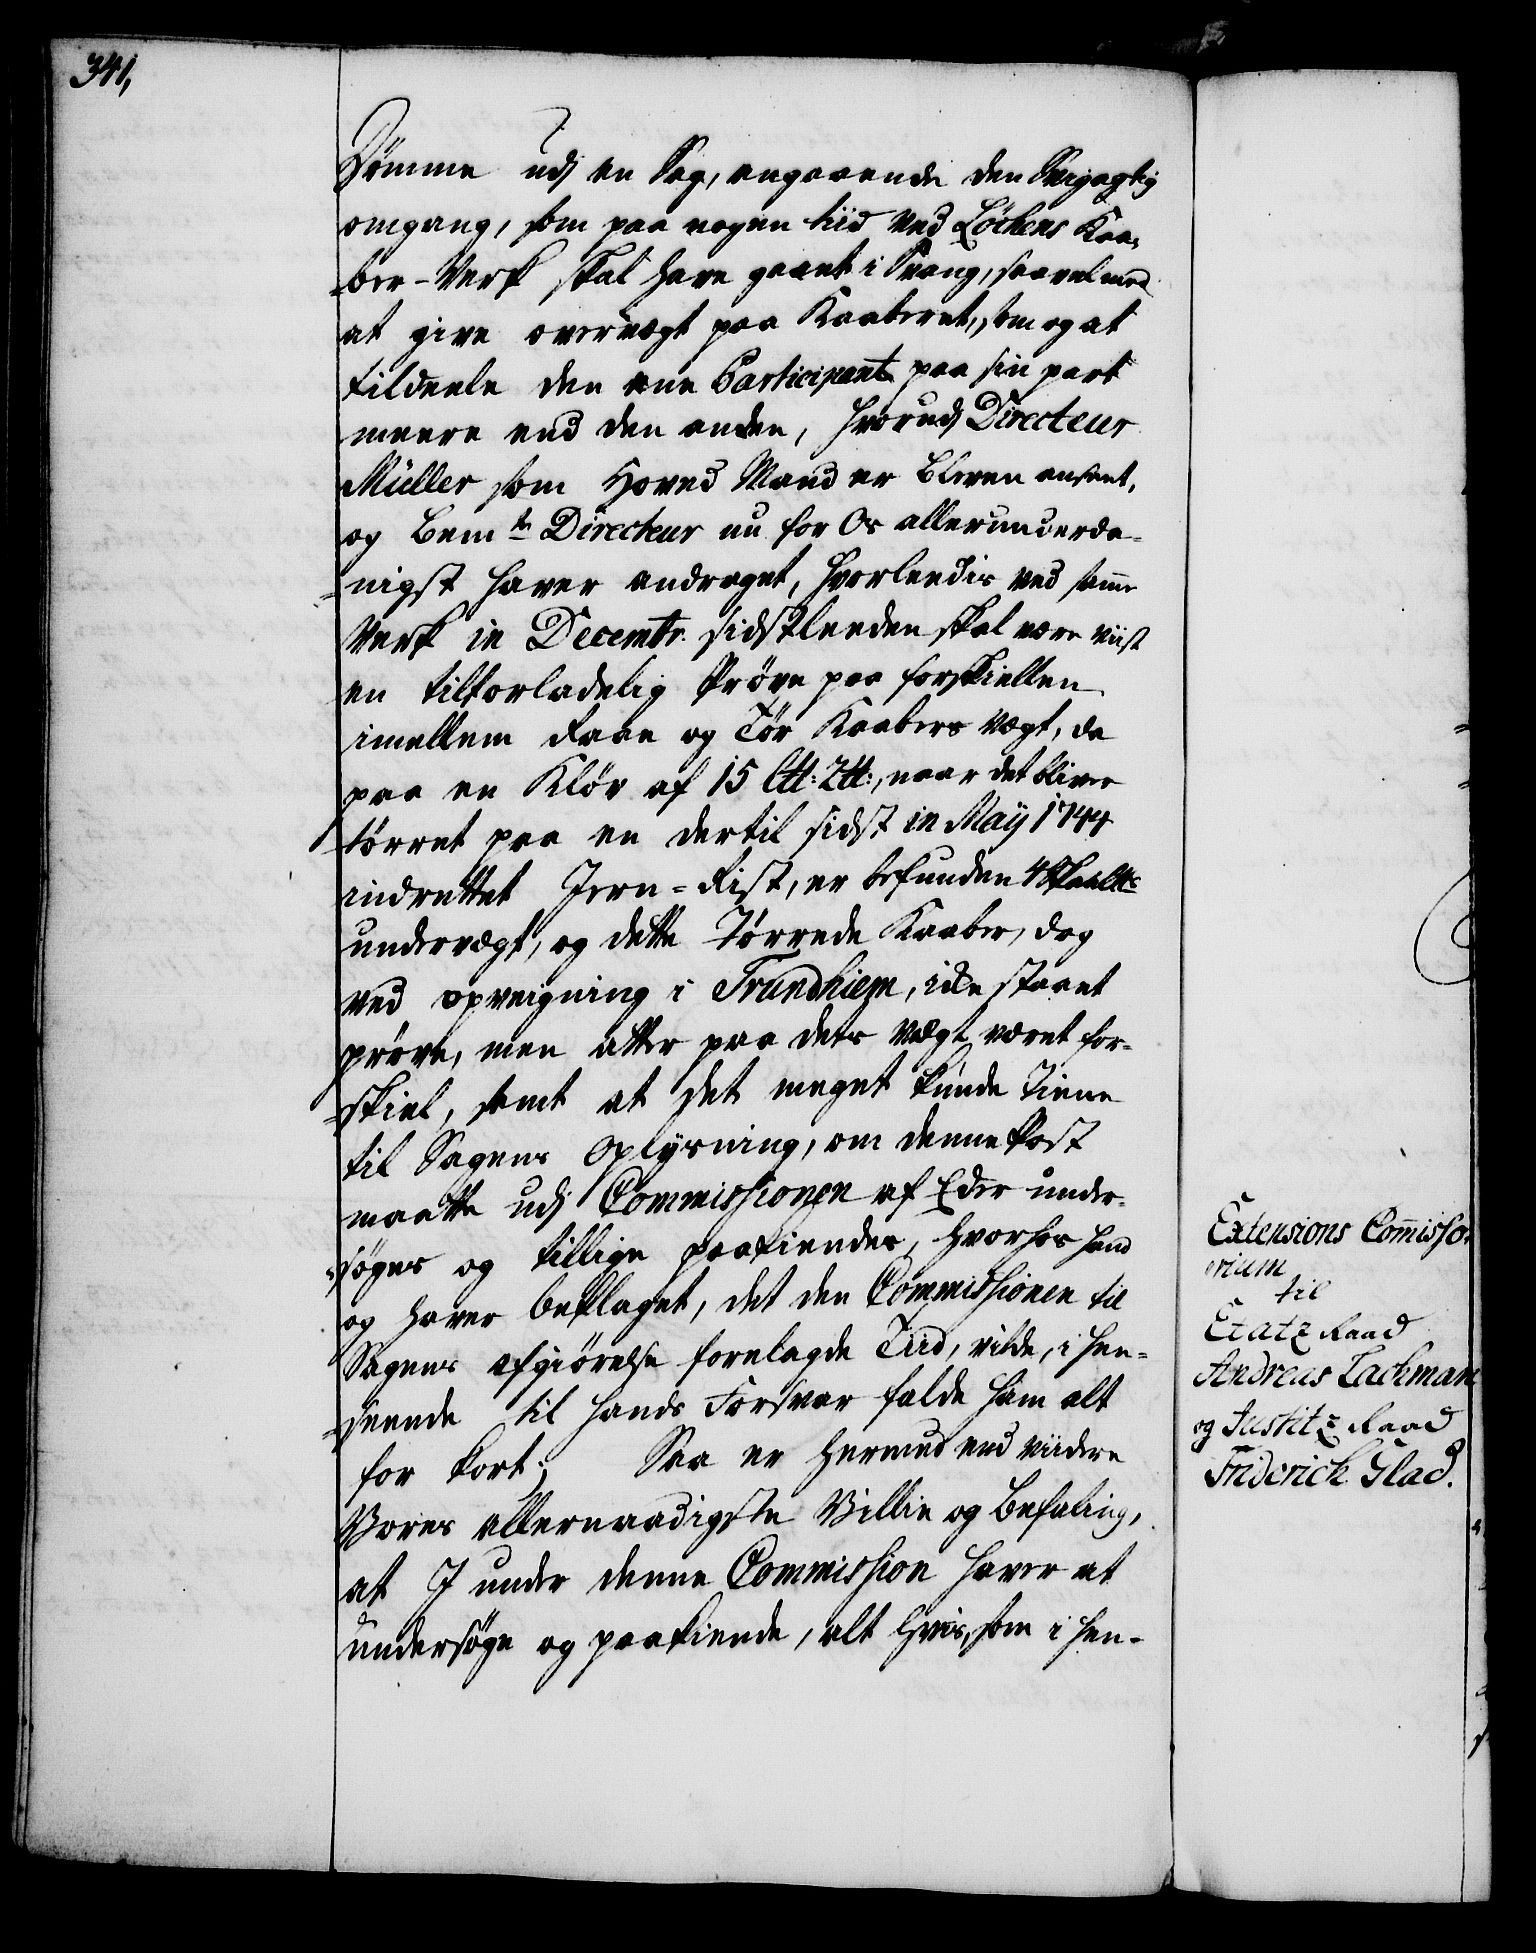 341,
Dømme udj en Sag, angaaende den Svigagtig
omgang, som paa nogen tiid ved Løckens Kaa-
-ber-Verk skal have gaaet i Svang, saavel med
at give overvægt paa Kaaberet, som og at
tildeele den eene Participant paa sin part
meere end den anden, hvorudj Directeur
Müller som Hoved Mand er bleven anseet,
og bemte Directeur nu for Os allerunderda-
-nigst haver andraget, hvorleedis ved samme
Verk in Decembr. sidstleeden skal være viist
en tilforladelig Prøve paa forskiellen
imellem Raae og Tør Kaabers vægt, da
paa en Kløv af 15 Ltt: 2tt:, naar det bliver
tørret paa en dertil sidst in Maij 1744
indrettet Jern-Rist, er befunden 4
undervægt, og dette Tørrede Kaaber, dog
ved opveigning i Trundhiem, icke staaet
prøve, men atter paa dets vægt været for-
-skiel, samt at det meget kunde tiene
til Sagens Oplysning, om denne Post
maatte udj Commissionen af Eder under-
-søges og tillige paakiendes, hvorhos hand
og haver beklaget, det den Commissionen til
Sagens afgiørelse forelagde Tiid, vilde, i hen-
-seende til hands Forsvar falde ham alt
for kort; Saa er hermed end viidere
Vores allernaadigste Villie og befaling,
at I under denne Commission haver at
undersøge og paakiende, alt hvis, som i hen-
Extensions Commisso-
rium
til
Etatz Raad
Andreas Lachman
og Justitz Raad
Friderich Glad.